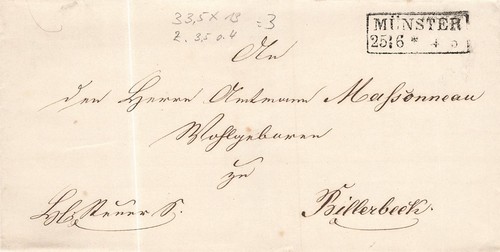 33,5 x 13
2. 3,5 0.4
=3
MÜNSTER
25 6 * 4 5
An
den Herrn Amtmann Massonneau
Wohlgeboren
zu
Steuer S.
Billerbeck.